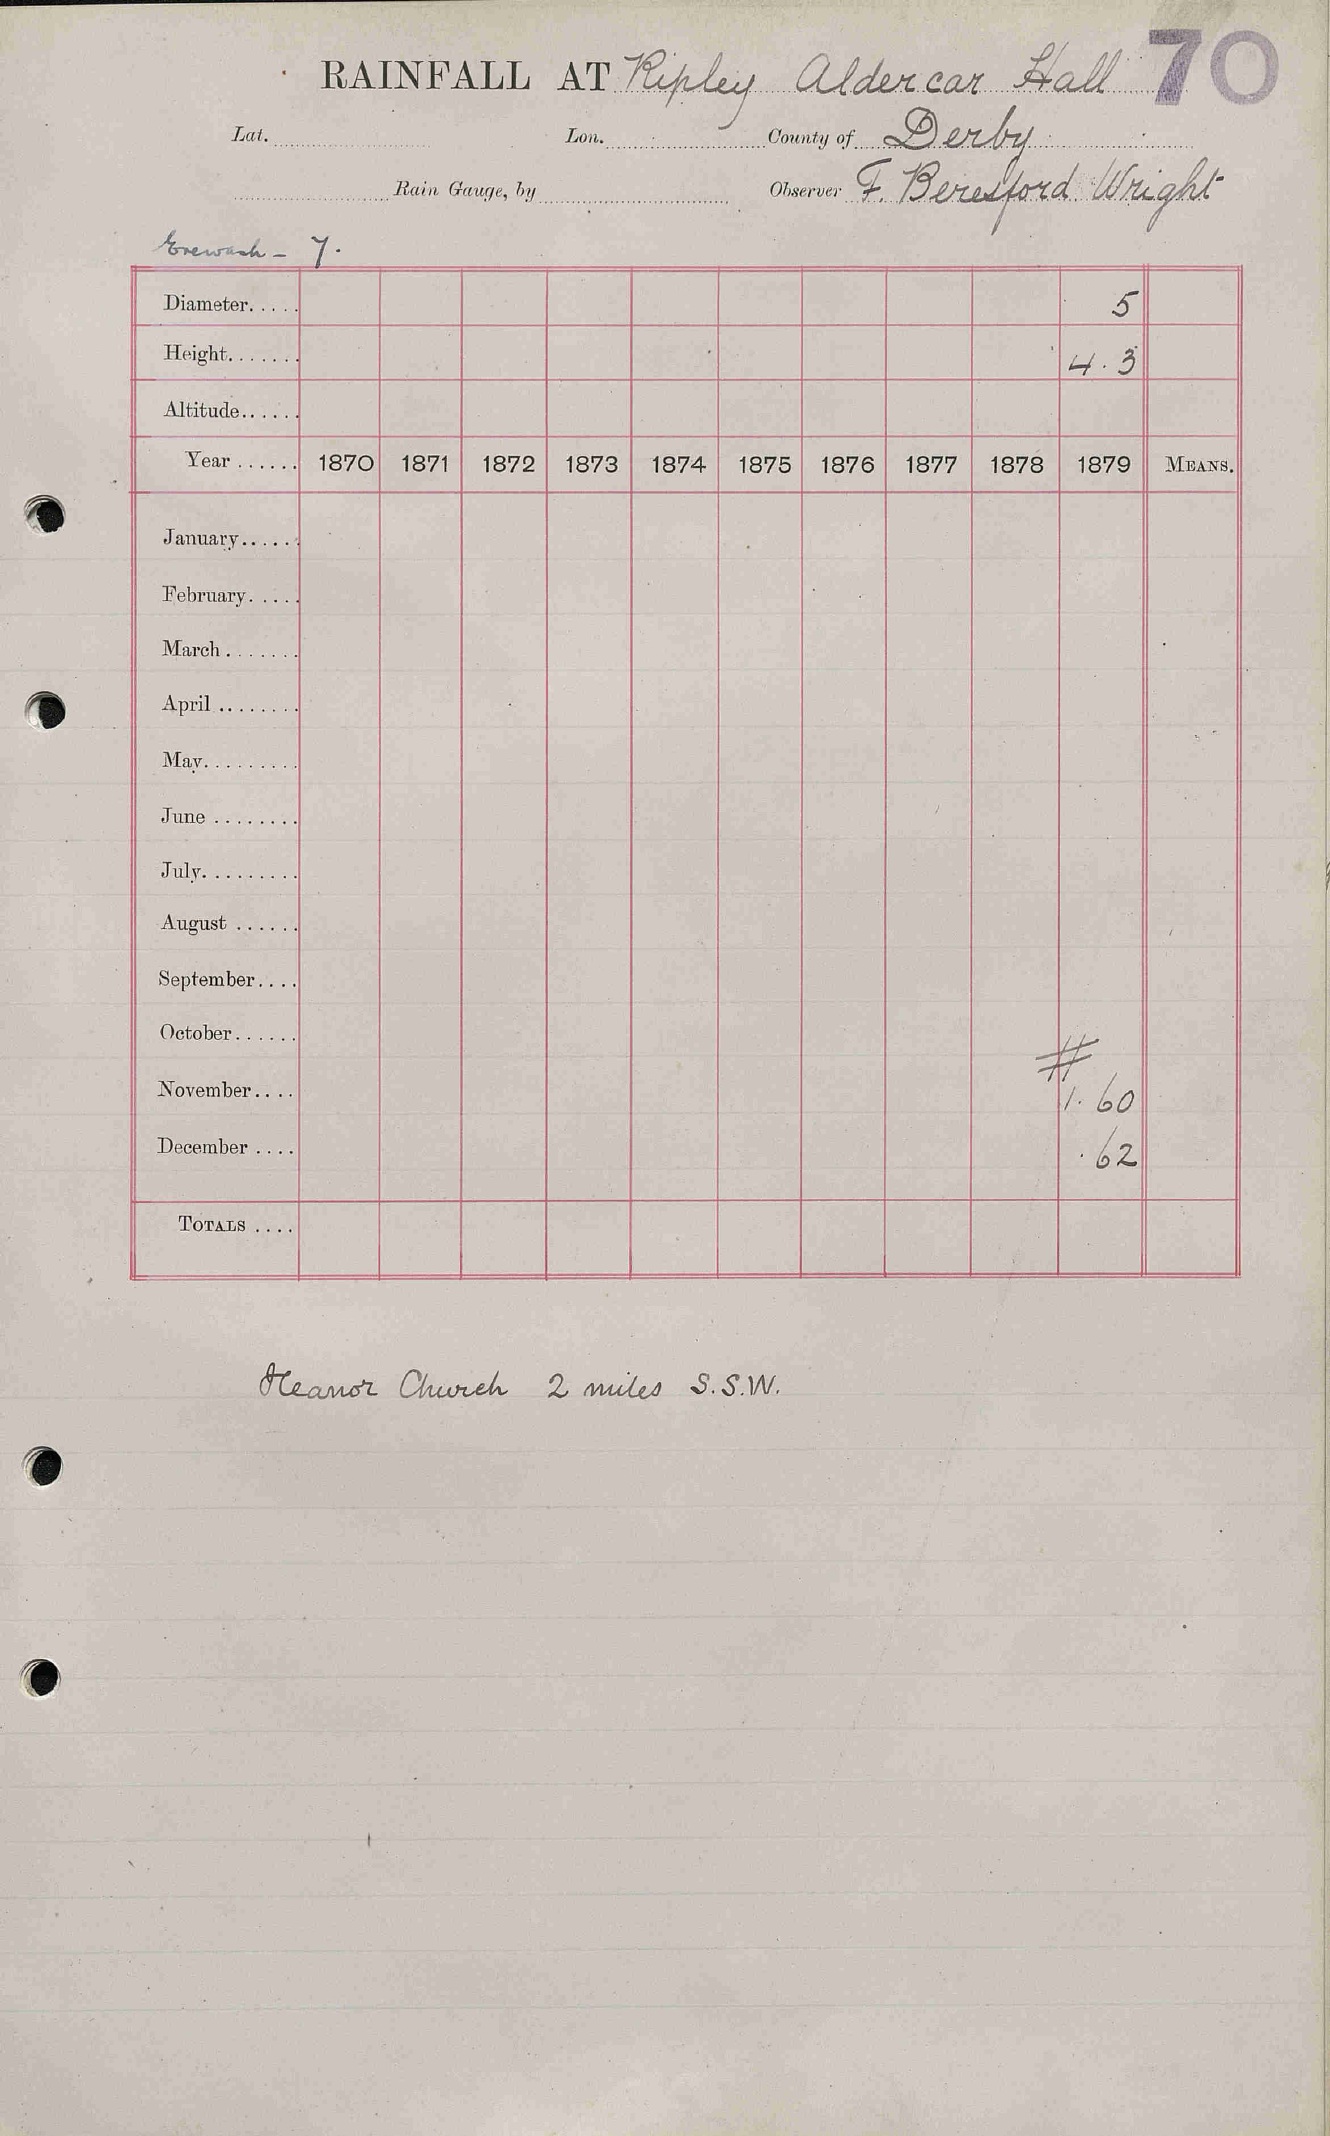 70
RAINFALL AT Ripley Aldercar Hall
Lat. Lon. County of Derby
Rain Gauge, by Observer F. Beresford Wright
Erewash - 7.
Diameter..... 5
Height....... 4.3
Altitude......
Year ...... 1870 1871 1872 1873 1874 1875 1876 1877 1878 1879 MEANS.
January......
February.....
March .......
April ........
May.........
June ........
July.........
August ......
September....
October......
#
November.... 1.60
December .... .62
TOTALS ....
Heanor Church 2 miles S.S.W.